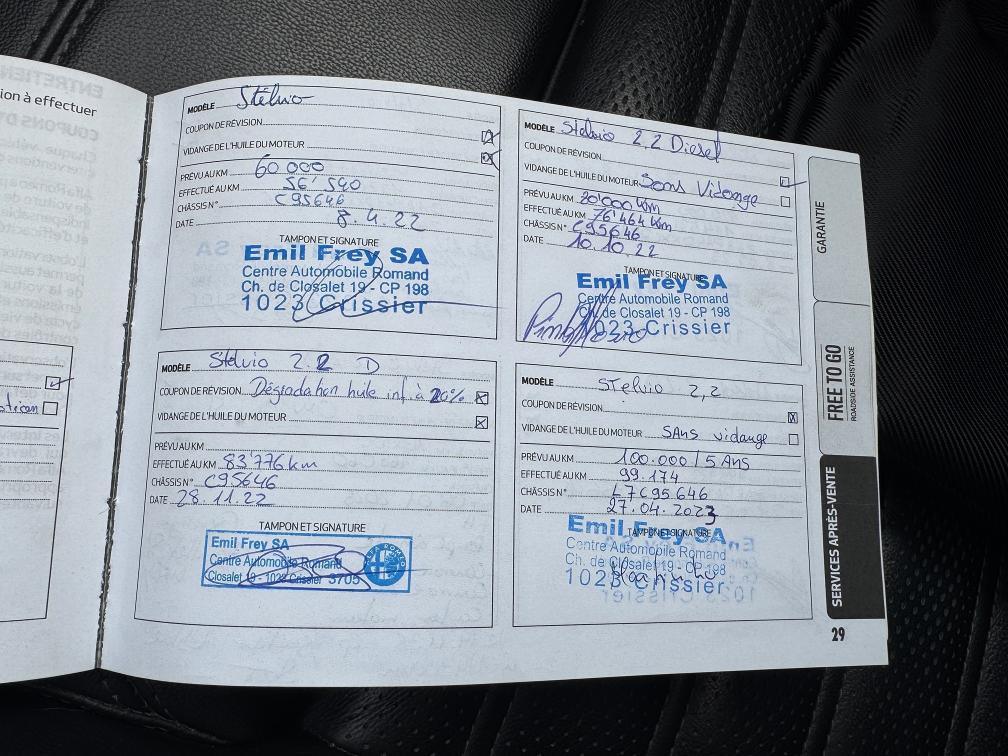 ion à effectuer
MODÈLE Stelvio
COUPON DE RÉVISION
VIDANGE DE L'HUILE DU MOTEUR
PRÉVU AU KM 60 000
EFFECTUÉ AU KM 56'540
CHÂSSIS N° C95646
DATE 8.4.22
TAMPON ET SIGNATURE
Emil Frey SA
Centre Automobile Romand
Ch. de Closalet 19 - CP 198
1023 Crissier
MODÈLE Stelvio 2,2 Diesel
COUPON DE RÉVISION
VIDANGE DE L'HUILE DU MOTEUR Sans Vidange
PRÉVU AU KM 80'000 km
EFFECTUÉ AU KM 76'464 km
CHÂSSIS N° C95646
DATE 10.10.22
TAMPON ET SIGNATURE
Emil Frey SA
Centre Automobile Romand
Ch. de Closalet 19 - CP 198
1023 Crissier
MODÈLE Stelvio 2.2 D
COUPON DE RÉVISION Dégradation huile inf. à 20%
VIDANGE DE L'HUILE DU MOTEUR
PRÉVU AU KM
EFFECTUÉ AU KM 83'776 km
CHÂSSIS N° C95646
DATE 28.11.22
TAMPON ET SIGNATURE
Emil Frey SA
Centre Automobile Romand
Closalet 19 - 1023 Crissier 3705
MODÈLE Stelvio 2,2
COUPON DE RÉVISION
VIDANGE DE L'HUILE DU MOTEUR SAns vidange
PRÉVU AU KM 100.000 / 5 Ans
EFFECTUÉ AU KM 99.174
CHÂSSIS N° L7C95646
DATE 27.04.2023
TAMPON ET SIGNATURE
Emil Frey SA
Centre Automobile Romand
Ch. de Closalet 19 - CP 198
1023 Crissier
GARANTIE
FREE TO GO
ROADSIDE ASSISTANCE
SERVICES APRÈS-VENTE
29